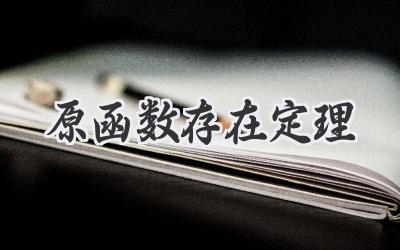 原函数存在定理